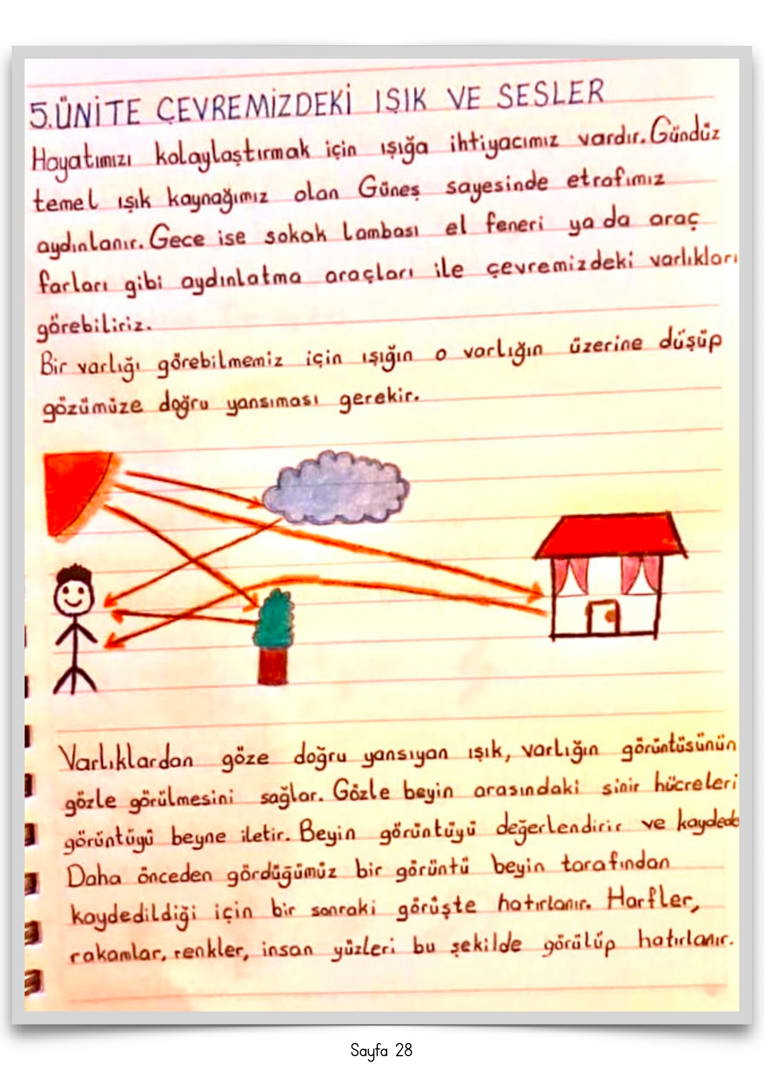 5.ÜNİTE ÇEVREMİZDEKİ IŞIK VE SESLER
Hayatımızı kolaylaştırmak için ışığa ihtiyacımız vardır. Gündüz
temel ışık kaynağımız olan Güneş sayesinde etrafımız
aydınlanır. Gece ise sokak lambası el feneri ya da araç
farları gibi aydınlatma araçları ile çevremizdeki varlıkları
görebiliriz.
Bir varlığı görebilmemiz için ışığın o varlığın üzerine düşüp
gözümüze doğru yansıması gerekir.
Varlıklardan göze doğru yansıyan ışık, varlığın görüntüsünün
gözle görülmesini sağlar. Gözle beyin arasındaki sinir hücreleri
görüntüyü beyne iletir. Beyin görüntüyü değerlendirir ve kaydede
Daha önceden gördüğümüz bir görüntü beyin tarafından
kaydedildiği için bir sonraki görüşte hatırlanır. Harfler,
rakamlar, renkler, insan yüzleri bu şekilde görülüp hatırlanır.
Sayfa 28